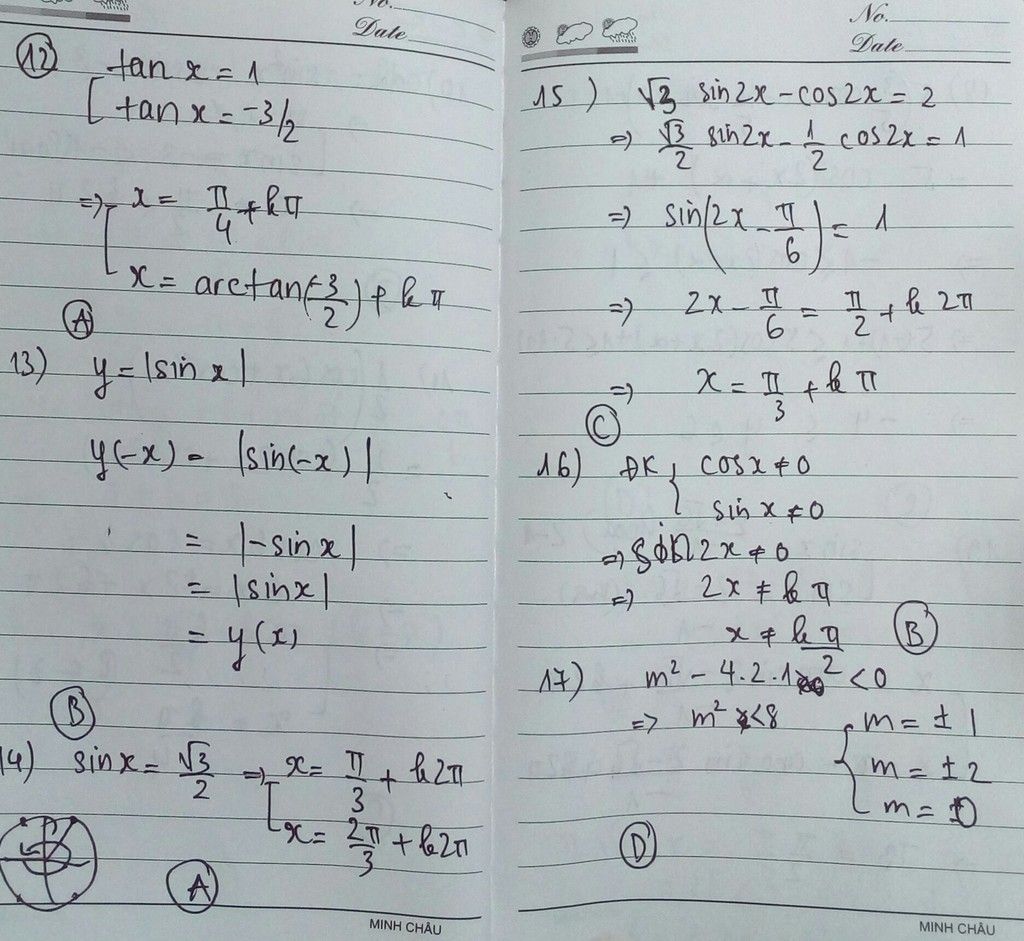 No.
Date
12) tan x = 1
[ tan x = -3/2
=> [ x = π/4 + kπ
x = arctan(-3/2) + kπ
A
13) y = |sin x|
y(-x) = |sin(-x)|
= |-sin x|
= |sin x|
= y(x)
B
14) sin x = √3/2 => [ x = π/3 + k2π
x = 2π/3 + k2π
A
MINH CHÂU
No.
Date
15) √3 sin2x - cos2x = 2
=> √3/2 sin2x - 1/2 cos2x = 1
=> sin(2x - π/6) = 1
=> 2x - π/6 = π/2 + k2π
=> x = π/3 + kπ
C
16) ĐK { cosx ≠ 0
sin x ≠ 0
=> sin 2x ≠ 0
=> 2x ≠ kπ
x ≠ kπ/2
B
17) m² - 4.2.1 < 0
=> m² < 8 { m = ±1
m = ±2
m = 0
D
MINH CHÂU